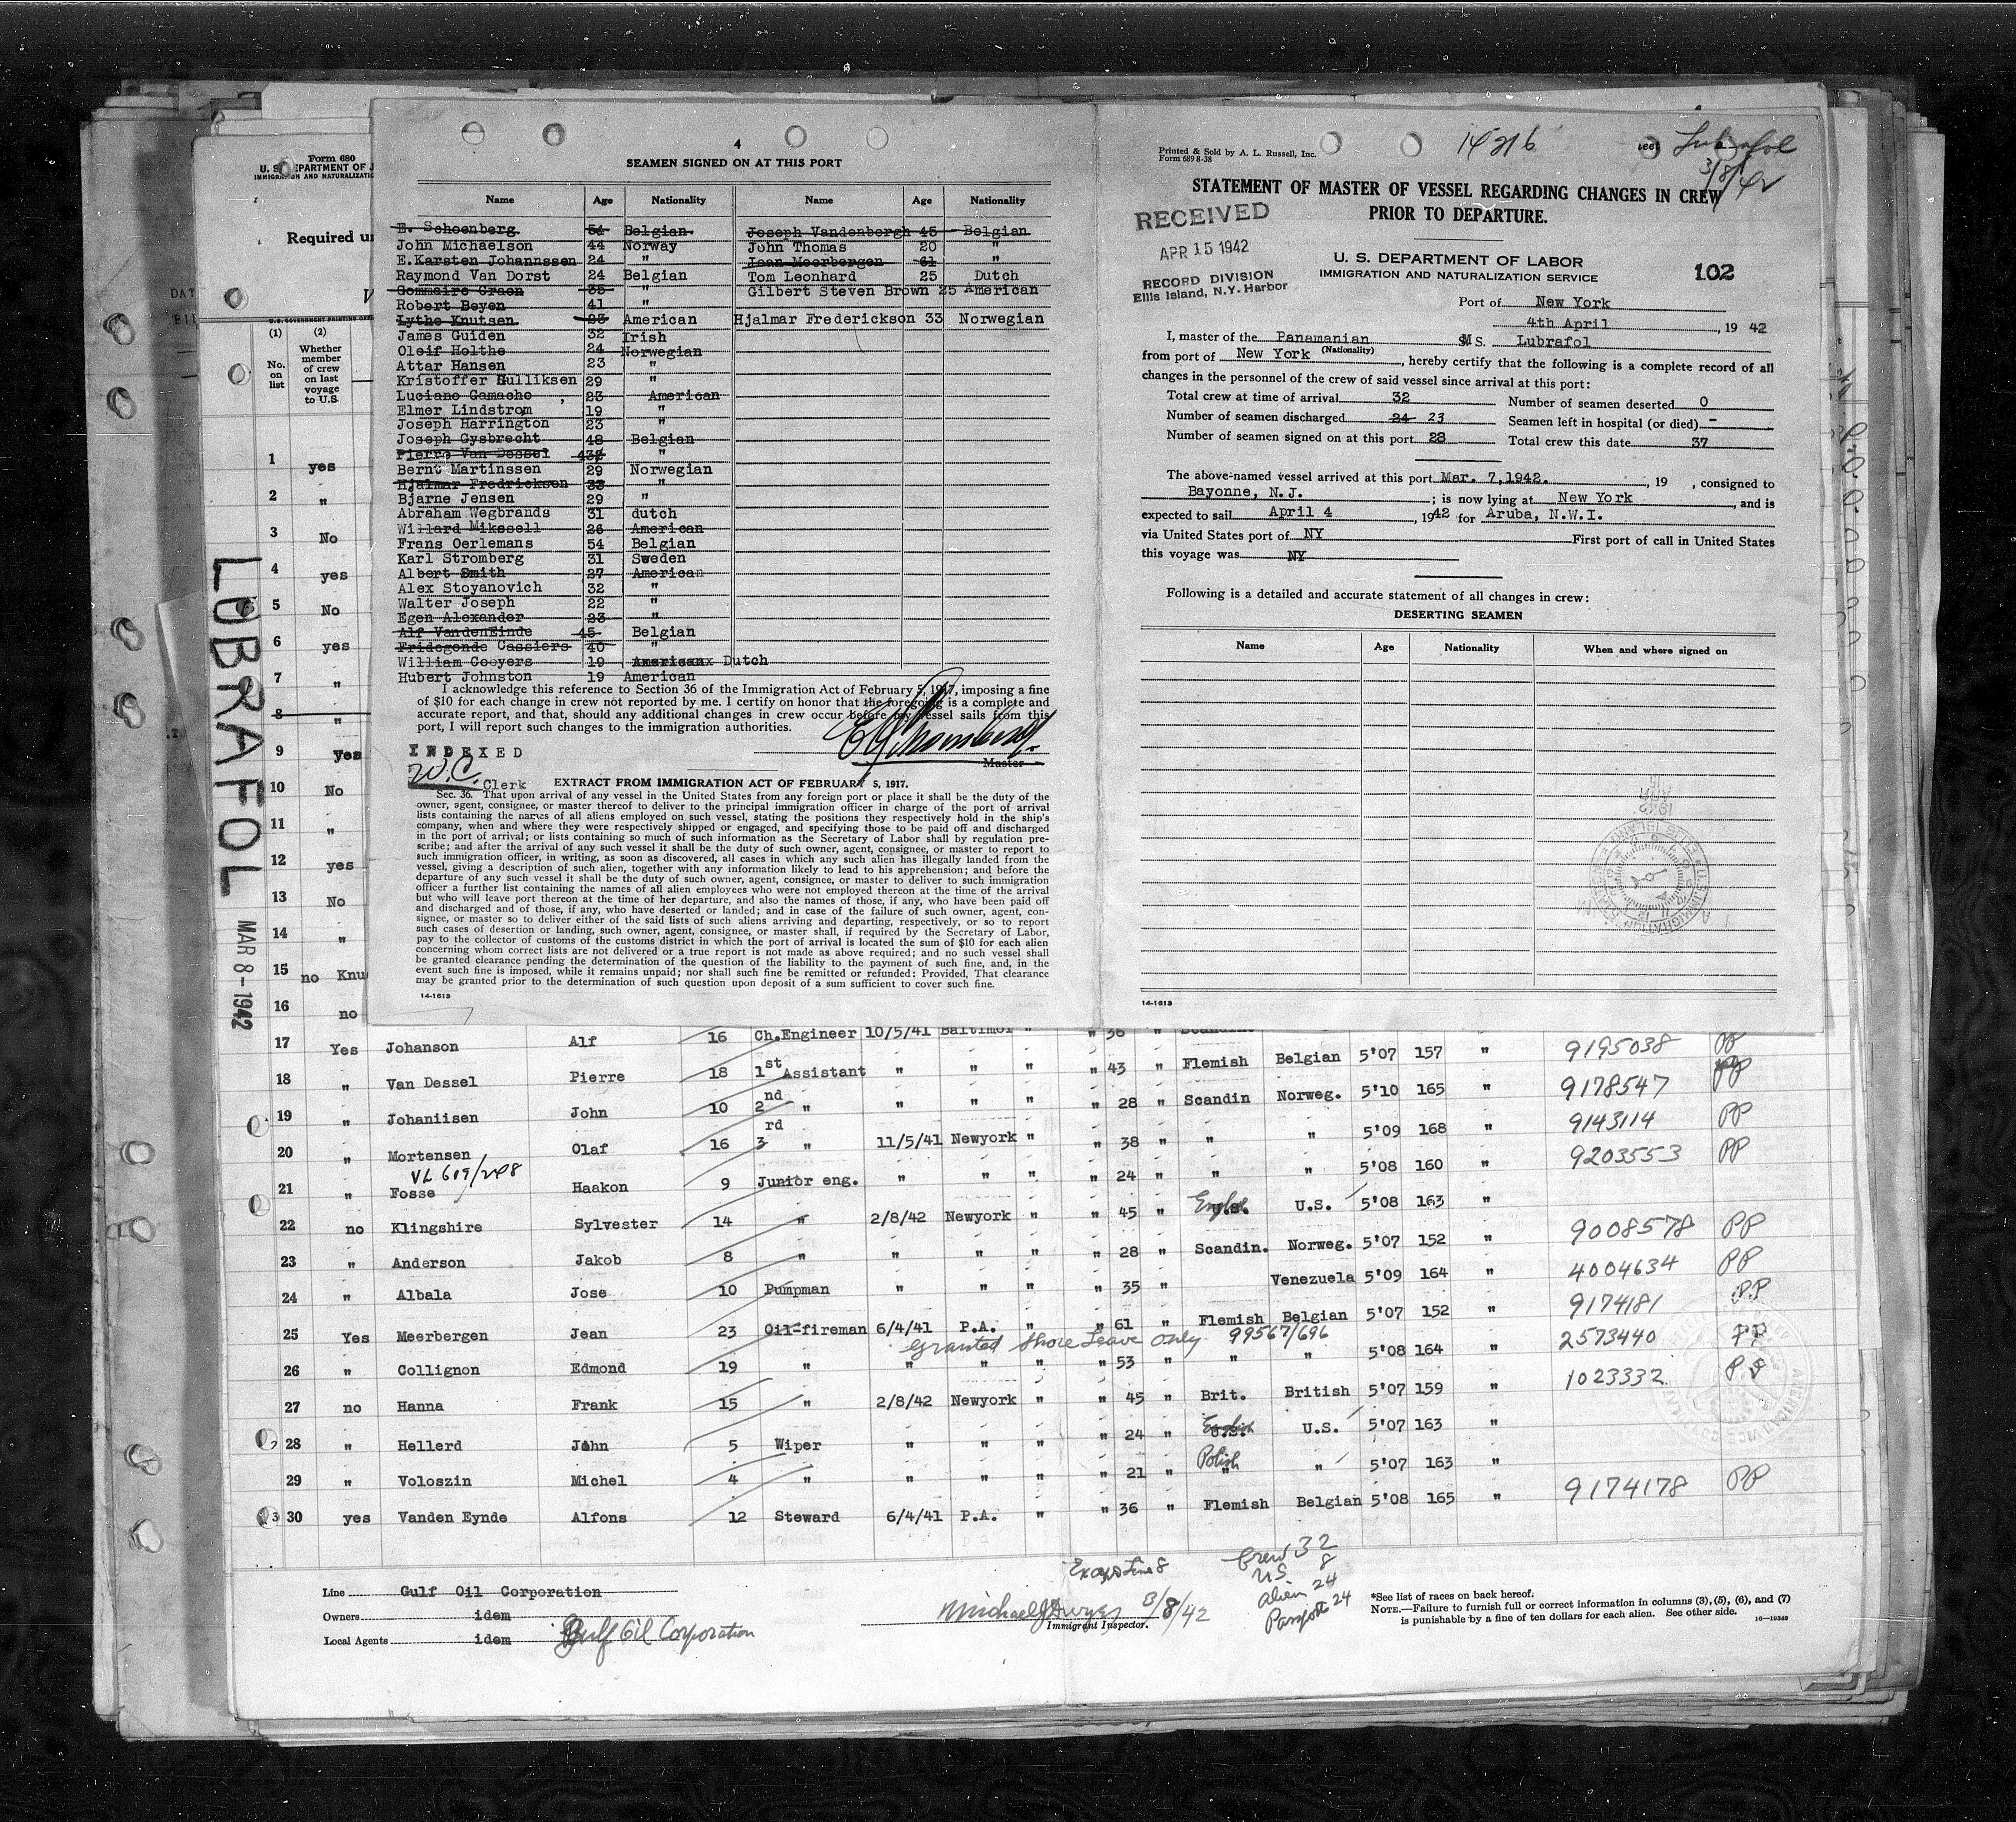 Form 680
U. S. DEPARTMENT OF J
IMMIGRATION AND NATURALIZATIO
Required u
U.S. GOVERNMENT PRINTING OFF
(1) (2)
No. on list
Whether member of crew on last voyage to U.S.
LUBRAFOL MAR 8-1942
4
SEAMEN SIGNED ON AT THIS PORT
Name Age Nationality Name Age Nationality
E. Schoenberg 54 Belgian Joseph Vandenbergh 45 Belgian
John Michaelson 44 Norway John Thomas 20 "
E.Karsten Johannssen 24 " Jean Meerbergen 61 "
Raymond Van Dorst 24 Belgian Tom Leonhard 25 Dutch
Gommaire Craen 35 " Gilbert Steven Brown 25 American
Robert Beyen 41 "
Lythe Knutsen 23 American Hjalmar Frederickson 33 Norwegian
James Guiden 32 Irish
Oleif Holthe 24 Norwegian
Attar Hansen 23 "
Kristoffer Gulliksen 29 "
Luciano Camacho , 23 American
Elmer Lindstrom 19 "
Joseph Harrington 23 "
Joseph Gysbrecht 48 Belgian
Pierre Van Dessel 43 "
Bernt Martinssen 29 Norwegian
Hjalmar Fredrickson 33 "
Bjarne Jensen 29 "
Abraham Wegbrands 31 dutch
Willard Mikesell 26 American
Frans Oerlemans 54 Belgian
Karl Stromberg 31 Sweden
Albert Smith 27 American
Alex Stoyanovich 32 "
Walter Joseph 22 "
Egen Alexander 23 "
Alf VandenEinde 45 Belgian
Fridegonde Cassiers 40 "
William Cooyers 19 Americanx Dutch
Hubert Johnston 19 American
I acknowledge this reference to Section 36 of the Immigration Act of February 5, 1917, imposing a fine
of $10 for each change in crew not reported by me. I certify on honor that the foregoing is a complete and
accurate report, and that, should any additional changes in crew occur before my vessel sails from this
port, I will report such changes to the immigration authorities.
INDEXED
W.C. Clerk
Master
EXTRACT FROM IMMIGRATION ACT OF FEBRUARY 5, 1917.
Sec. 36. That upon arrival of any vessel in the United States from any foreign port or place it shall be the duty of the
owner, agent, consignee, or master thereof to deliver to the principal immigration officer in charge of the port of arrival
lists containing the names of all aliens employed on such vessel, stating the positions they respectively hold in the ship's
company, when and where they were respectively shipped or engaged, and specifying those to be paid off and discharged
in the port of arrival; or lists containing so much of such information as the Secretary of Labor shall by regulation pre-
scribe; and after the arrival of any such vessel it shall be the duty of such owner, agent, consignee, or master to report to
such immigration officer, in writing, as soon as discovered, all cases in which any such alien has illegally landed from the
vessel, giving a description of such alien, together with any information likely to lead to his apprehension; and before the
departure of any such vessel it shall be the duty of such owner, agent, consignee, or master to deliver to such immigration
officer a further list containing the names of all alien employees who were not employed thereon at the time of the arrival
but who will leave port thereon at the time of her departure, and also the names of those, if any, who have been paid off
and discharged and of those, if any, who have deserted or landed; and in case of the failure of such owner, agent, con-
signee, or master so to deliver either of the said lists of such aliens arriving and departing, respectively, or so to report
such cases of desertion or landing, such owner, agent, consignee, or master shall, if required by the Secretary of Labor,
pay to the collector of customs of the customs district in which the port of arrival is located the sum of $10 for each alien
concerning whom correct lists are not delivered or a true report is not made as above required; and no such vessel shall
be granted clearance pending the determination of the question of the liability to the payment of such fine, and, in the
event such fine is imposed, while it remains unpaid; nor shall such fine be remitted or refunded; Provided, That clearance
may be granted prior to the determination of such question upon deposit of a sum sufficient to cover such fine.
14-1613
Printed & Sold by A. L. Russell, Inc.
Form 689 8-38
14216 Lubrafol
3/8/42
STATEMENT OF MASTER OF VESSEL REGARDING CHANGES IN CREW
PRIOR TO DEPARTURE.
RECEIVED
APR 15 1942
RECORD DIVISION
Ellis Island, N.Y. Harbor
U. S. DEPARTMENT OF LABOR
IMMIGRATION AND NATURALIZATION SERVICE
102
Port of New York
4th April, 19 42
I, master of the Panamanian M S. Lubrafol
(Nationality)
from port of New York, hereby certify that the following is a complete record of all
changes in the personnel of the crew of said vessel since arrival at this port:
Total crew at time of arrival 32 Number of seamen deserted 0
Number of seamen discharged 24 23 Seamen left in hospital (or died) -
Number of seamen signed on at this port 28 Total crew this date 37
The above-named vessel arrived at this port Mar. 7,1942., 19 , consigned to
Bayonne, N.J. ; is now lying at New York, and is
expected to sail April 4, 1942 for Aruba, N.W.I.
via United States port of NY First port of call in United States
this voyage was NY
Following is a detailed and accurate statement of all changes in crew:
DESERTING SEAMEN
Name Age Nationality When and where signed on
14-1613
1 yes
2 "
3 No
4 yes
5 No
6 yes
7 "
8 "
9 yes
10 No
11 "
12 yes
13 No
14 "
15 no Knu
16 no
17 Yes Johanson Alf 16 Ch.Engineer 10/5/41 Baltimor " " 36 "
18 " Van Dessel Pierre 18 1st Assistant " " " " 43 " Flemish Belgian 5'07 157 " 9195038 PP
19 " Johaniisen John 10 2nd " " " " " 28 " Scandin Norweg. 5'10 165 " 9178547 PP
20 " Mortensen Olaf 16 3rd " 11/5/41 Newyork " " 38 " " " 5'09 168 " 9143114 PP
VL 609/248
21 " Fosse Haakon 9 Junior eng. " " " " 24 " " " 5'08 160 " 9203553 PP
22 no Klingshire Sylvester 14 " 2/8/42 Newyork " " 45 " U.S. U.S. 5'08 163 "
23 " Anderson Jakob 8 " " " " " 28 " Scandin. Norweg. 5'07 152 " 9008578 PP
24 " Albala Jose 10 Pumpman " " " " 35 " Venezuela 5'09 164 " 4004634 PP
25 Yes Meerbergen Jean 23 Oil-fireman 6/4/41 P.A. " " 61 " Flemish Belgian 5'07 152 " 9174181 PP
Granted Shore Leave Only 99567/696
26 " Collignon Edmond 19 " " " " " 53 " " " 5'08 164 " 2573440 PP
27 no Hanna Frank 15 " 2/8/42 Newyork " " 45 " Brit. British 5'07 159 " 1023332
28 " Hellerd John 5 Wiper " " " " 24 " English U.S. 5'07 163 "
29 " Voloszin Michel 4 " " " " " 21 " Polish " 5'07 163 "
30 yes Vanden Eynde Alfons 12 Steward 6/4/41 P.A. " " 36 " Flemish Belgian 5'08 165 " 9174178 PP
Line Gulf Oil Corporation
Owners idem
Local Agents idem Gulf Oil Corporation
Except Line 8
Michael J Dwyer 3/8/42
Immigrant Inspector.
Crew 32
US 8
Alien 24
Passports 24
*See list of races on back hereof.
NOTE.—Failure to furnish full or correct information in columns (3), (5), (6), and (7)
is punishable by a fine of ten dollars for each alien. See other side. 16—19349